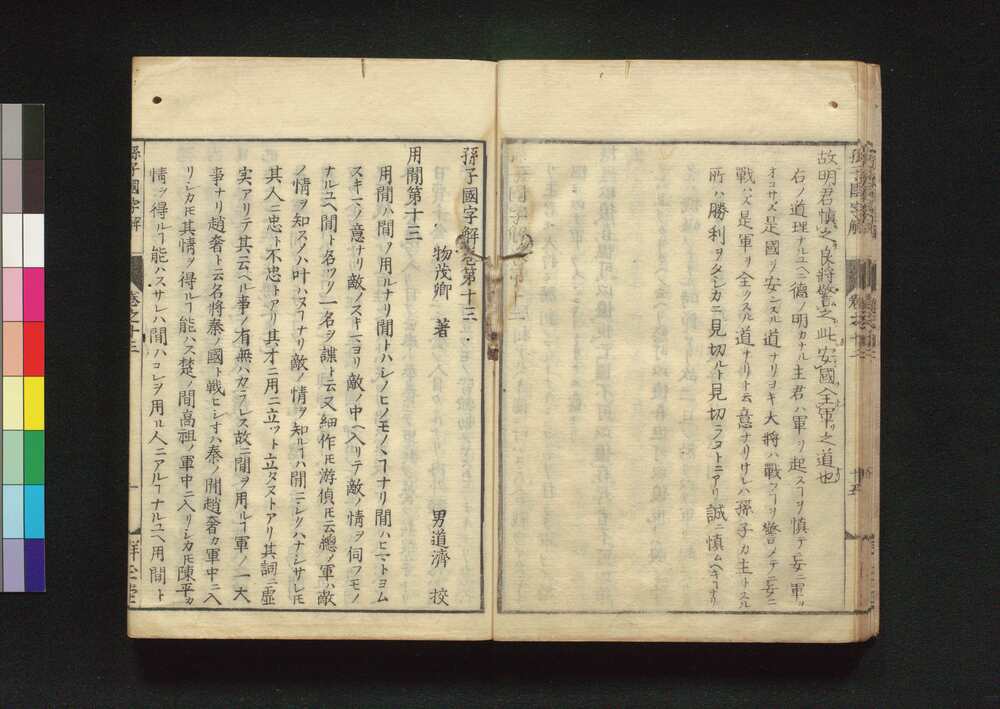 故明君慎之良將警之此安國全軍之道也
右ノ道理ナルユヘニ德ノ明カナル主君ハ軍ヲ起スヿヲ慎テ妄ニ軍ヲ
オコサズ是國ヲ安ンズル道ナリヨキ大將ハ戰フヿヲ警メテ妄ニ
戰ハズ是軍ヲ全フスル道ナリト云意ナリサレハ孫子カ主トスル
所ハ勝利ヲタシカニ見切ルト見切ラヌトニアリ誠ニ慎ムヘキヿナリ
孫子國字解卷第十三
物茂卿 著
男道濟 校
用間第十三
用間ハ間ノ用ルナリ間トハシノヒノモノヽヿナリ間ハヒマトヨム
スキマノ意ナリ敵ノスキマヨリ敵ノ中ヘ入リテ敵ノ情ヲ伺フモノ
ナルユヘ間ト名ツク一名ヲ諜ト云又細作トモ游偵トモ云總ノ軍ハ敵
ノ情ヲ知スノハ叶ハヌヿナリ敵ノ情ヲ知ルヿハ間ニシクハナシサレトモ
其人ニ忠ト不忠トアリ其才ニ用ニ立ツト立タヌトアリ其詞ニ虛
実アリテ其云ヘル事ノ有無ハカラレス故ニ間ヲ用ルヿ軍ノ一大
事ナリ趙奢ト云名將秦ノ國ト戰ヒシオハ秦ノ間趙奢カ軍中ニ入
リシカトモ其情ヲ得ルヿ能ハス楚ノ間高祖ノ軍中ニ入リシカトモ陳平カ
情ヲ得ルヿ能ハスサレハ間ハコレヲ用ル人ニアルヿナルユヘ用間ト
孫子國字解
卷之十三
一